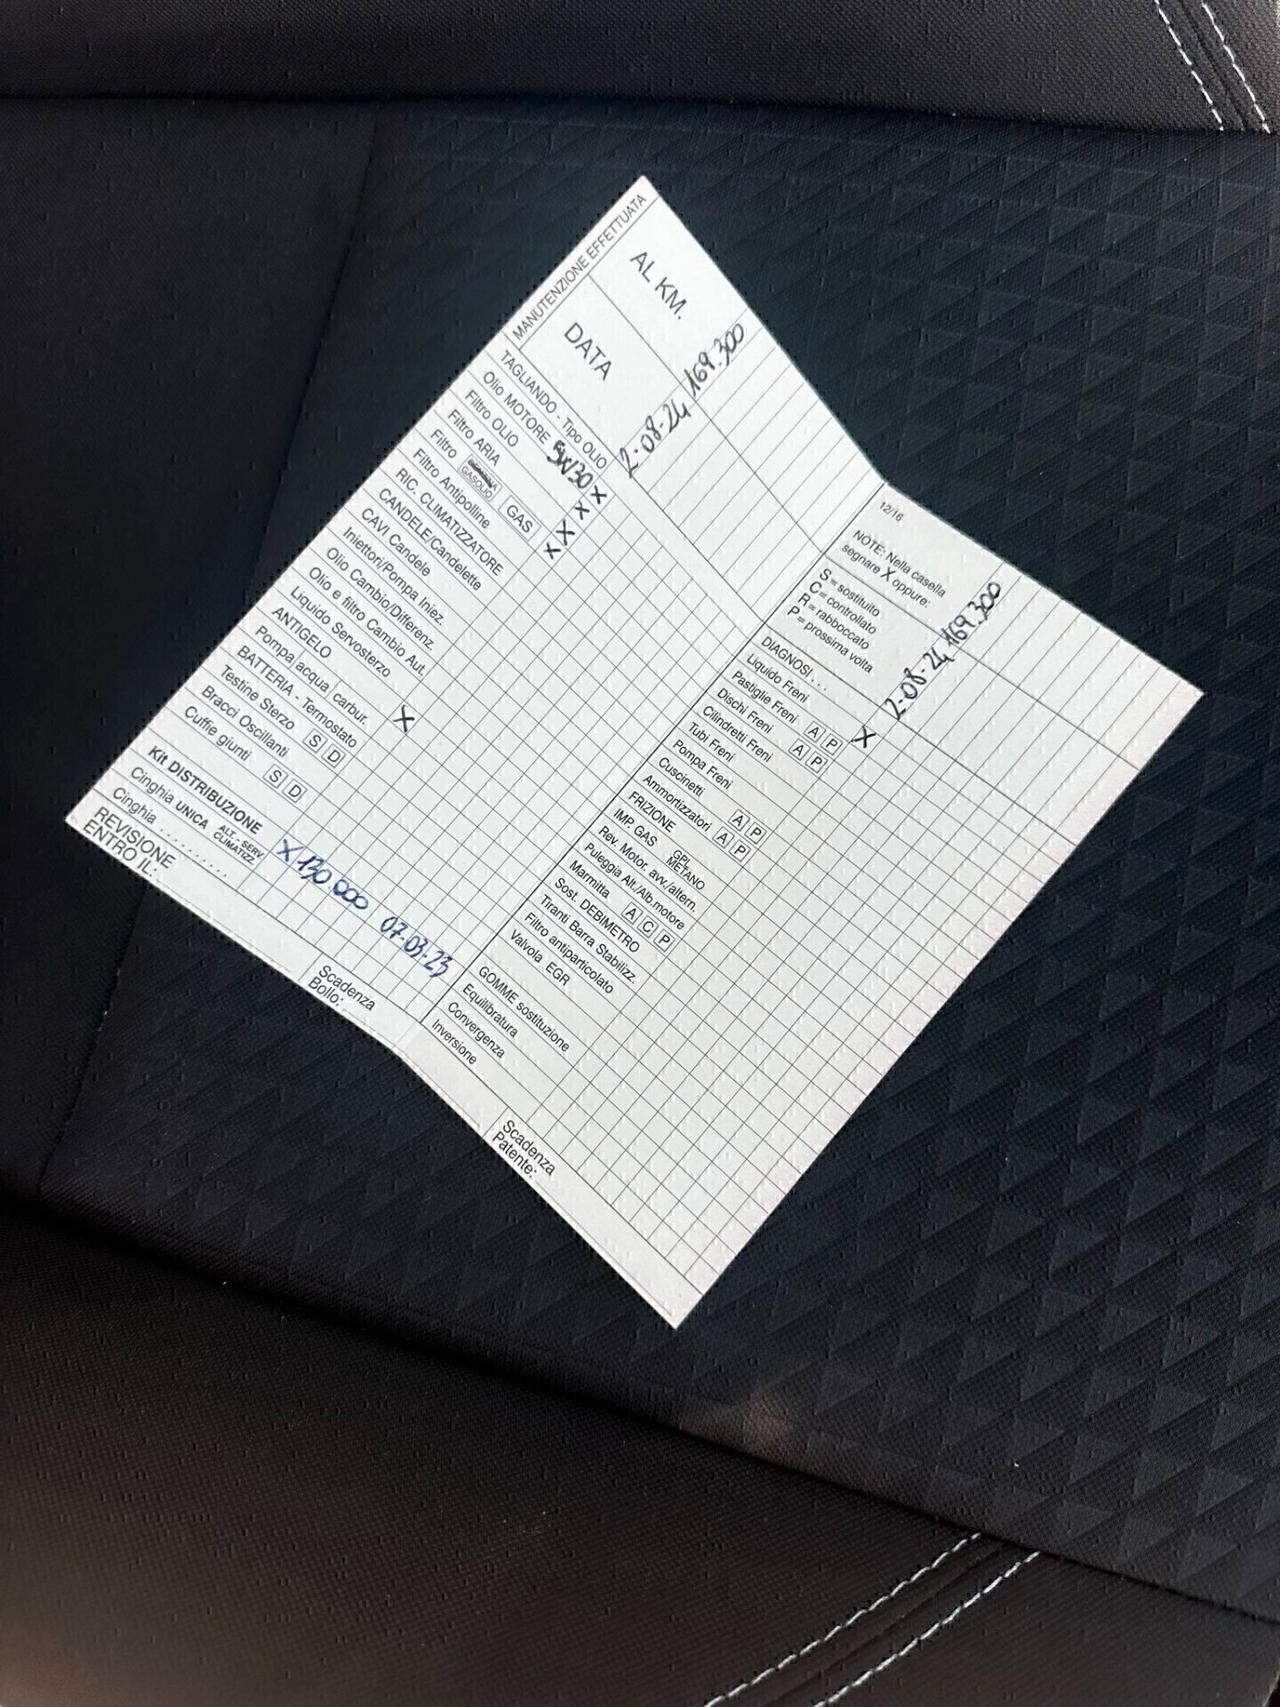 MANUTENZIONE EFFETTUATA
AL KM.
169.300
DATA
2.08.24
TAGLIANDO - Tipo OLIO
Olio MOTORE 5W30 X
Filtro OLIO X
Filtro ARIA X
Filtro GASOLIO GAS
Filtro Antipolline X
RIC. CLIMATIZZATORE
CANDELE/Candelette
CAVI Candele
Iniettori/Pompa Iniez.
Olio Cambio/Differenz.
Olio e filtro Cambio Aut.
Liquido Servosterzo
ANTIGELO
Pompa acqua / carbur.
BATTERIA - Termostato X
Testine Sterzo S D
Bracci Oscillanti
Cuffie giunti S D
Kit DISTRIBUZIONE X 130 000 07-03-23
Cinghia UNICA ALT. + SERV. CLIMATIZZ.
Cinghia ..........
REVISIONE ENTRO IL:
Scadenza
Bollo:
12/16
NOTE: Nella casella
segnare X oppure:
S = sostituito
C = controllato
R = rabboccato
P = prossima volta
169.300
2.08.24
DIAGNOSI . . .
Liquido Freni
Pastiglie Freni A P X
Dischi Freni A P
Cilindretti Freni
Tubi Freni
Pompa Freni
Cuscinetti A P
Ammortizzatori A P
FRIZIONE
IMP. GAS GPL METANO
Rev. Motor. avv./altern.
Puleggia Alt./Alb.motore
Marmitta A C P
Sost. DEBIMETRO
Tiranti Barra Stabilizz.
Filtro antiparticolato
Valvola EGR
GOMME sostituzione
Equilibratura
Convergenza
Inversione
Scadenza
Patente: